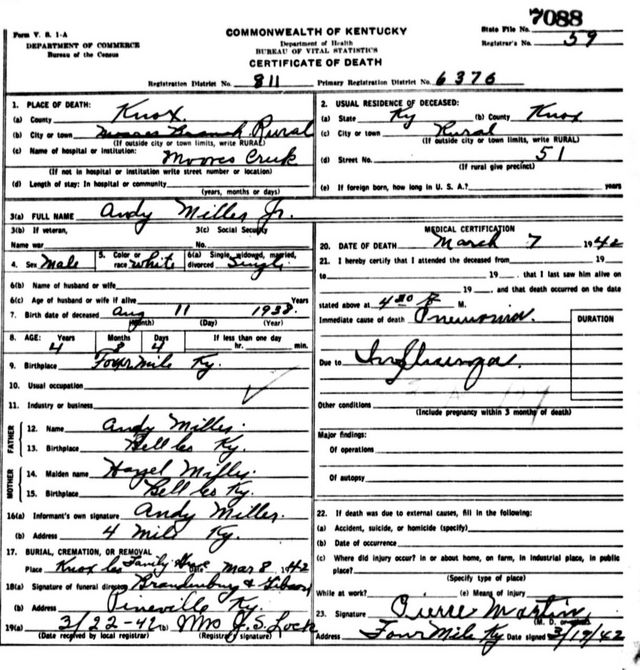 7088
Form V. S. 1-A
DEPARTMENT OF COMMERCE
Bureau of the Census
COMMONWEALTH OF KENTUCKY
Department of Health
BUREAU OF VITAL STATISTICS
CERTIFICATE OF DEATH
State File No.
Registrar's No. 59
Registration District No. 811 Primary Registration District No. 6376
1. PLACE OF DEATH:
(a) County Knox
(b) City or town Moores Branch Rural
(If outside city or town limits, write RURAL)
(c) Name of hospital or institution:
Moores Creek
(If not in hospital or institution write street number or location)
(d) Length of stay: In hospital or community
(years, months or days)
2. USUAL RESIDENCE OF DECEASED:
(a) State Ky (b) County Knox
(c) City or town Rural
(If outside city or town limits, write RURAL)
(d) Street No. 51
(If rural give precinct)
(e) If foreign born, how long in U. S. A.? years
3(a) FULL NAME Andy Miller Jr.
3(b) If veteran, 3(c) Social Security
Name war No.
4. Sex Male 5. Color or race White 6(a) Single, widowed, married, divorced Single
6(b) Name of husband or wife
6(c) Age of husband or wife if alive Years
7. Birth date of deceased Aug 11 1938
(Month) (Day) (Year)
8. AGE: Years Months Days If less than one day
4 8 4 hr. min.
9. Birthplace Four Mile Ky.
10. Usual occupation
11. Industry or business
FATHER
12. Name Andy Miller
13. Birthplace Bell Co Ky.
MOTHER
14. Maiden name Hazel Miller
15. Birthplace Bell Co Ky.
16(a) Informant's own signature Andy Miller
(b) Address 4 Mile Ky.
17. BURIAL, CREMATION, OR REMOVAL
Place Knox Co Family Date Mar 8 1942
18(a) Signature of funeral director Brandenburg & Gibson
(b) Address Pineville Ky.
19(a) 3/22-42 (b) Mrs J. S. Lock
(Date received by local registrar) (Registrar's signature)
MEDICAL CERTIFICATION
20. DATE OF DEATH March 7 1942
21. I hereby certify that I attended the deceased from 19
to 19 that I last saw him alive on
19 and that death occurred on the date
stated above at 4 30 P M.
Immediate cause of death Pneumonia
DURATION
Due to Influenza
Other conditions
(Include pregnancy within 3 months of death)
Major findings:
Of operations
Of autopsy
22. If death was due to external causes, fill in the following:
(a) Accident, suicide, or homicide (specify)
(b) Date of occurrence
(c) Where did injury occur? in or about home, on farm, in industrial place, in public
place?
(Specify type of place)
While at work? (e) Means of injury
23. Signature Pierce Martin
(M. D. or
Address Four Mile Ky Date signed 3/19/42